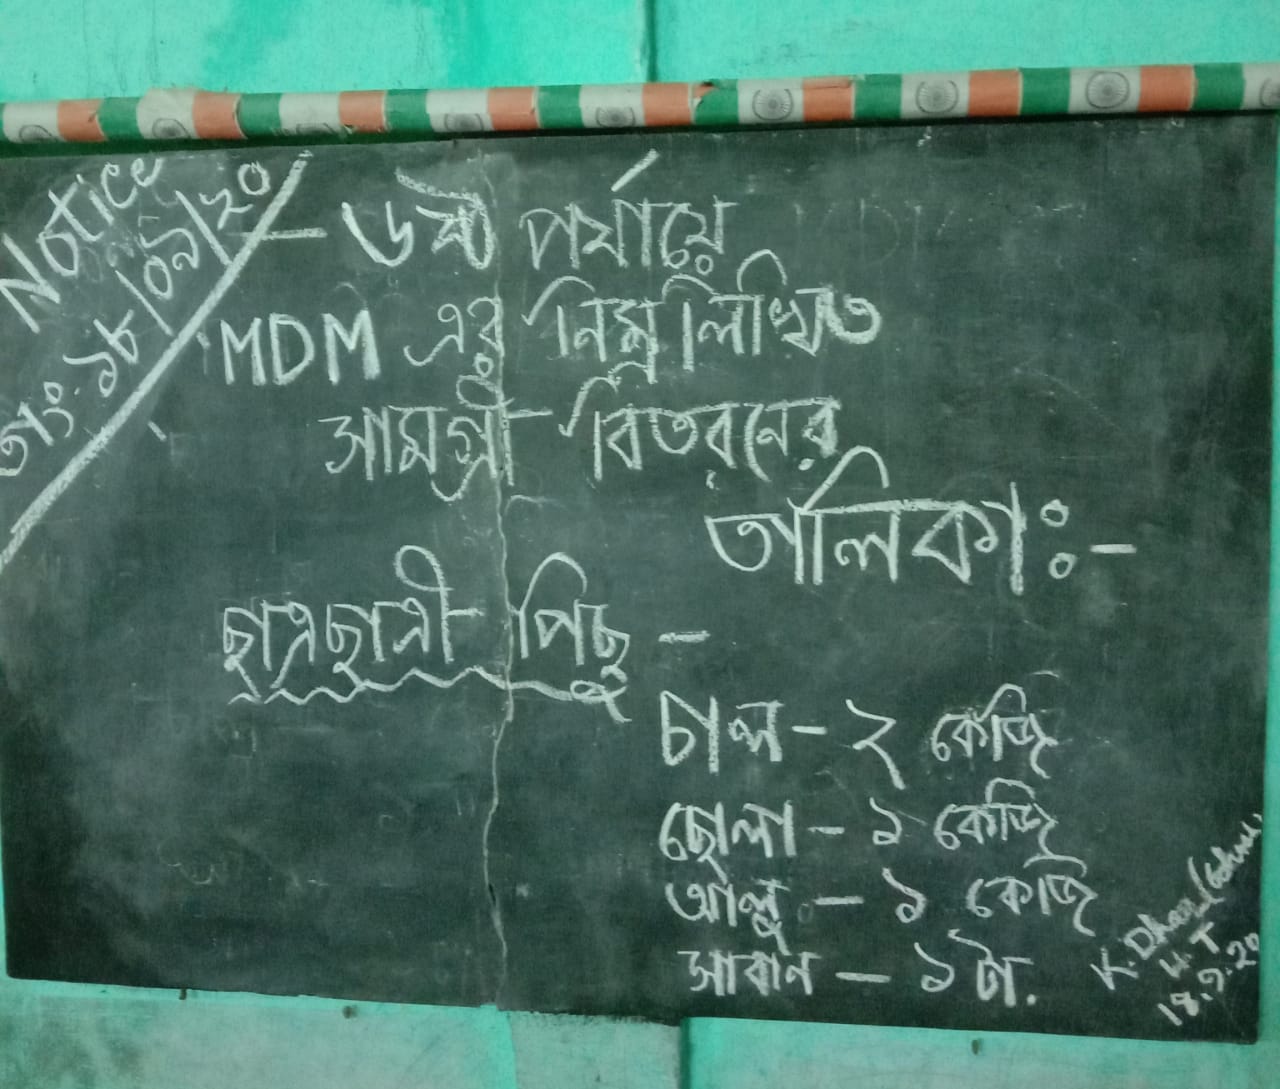 Notice
তাং-১৮/০৯/২০
৬ষ্ঠ পর্যায়ে
MDM এর নিম্নলিখিত
সামগ্রী বিতরনের
তালিকাঃ-
ছাত্রছাত্রী পিছু -
চাল - ২ কেজি
ছোলা - ১ কেজি
আলু - ১ কেজি
সাবান - ১ টা.
K. Dhar
H.T
18.9.20